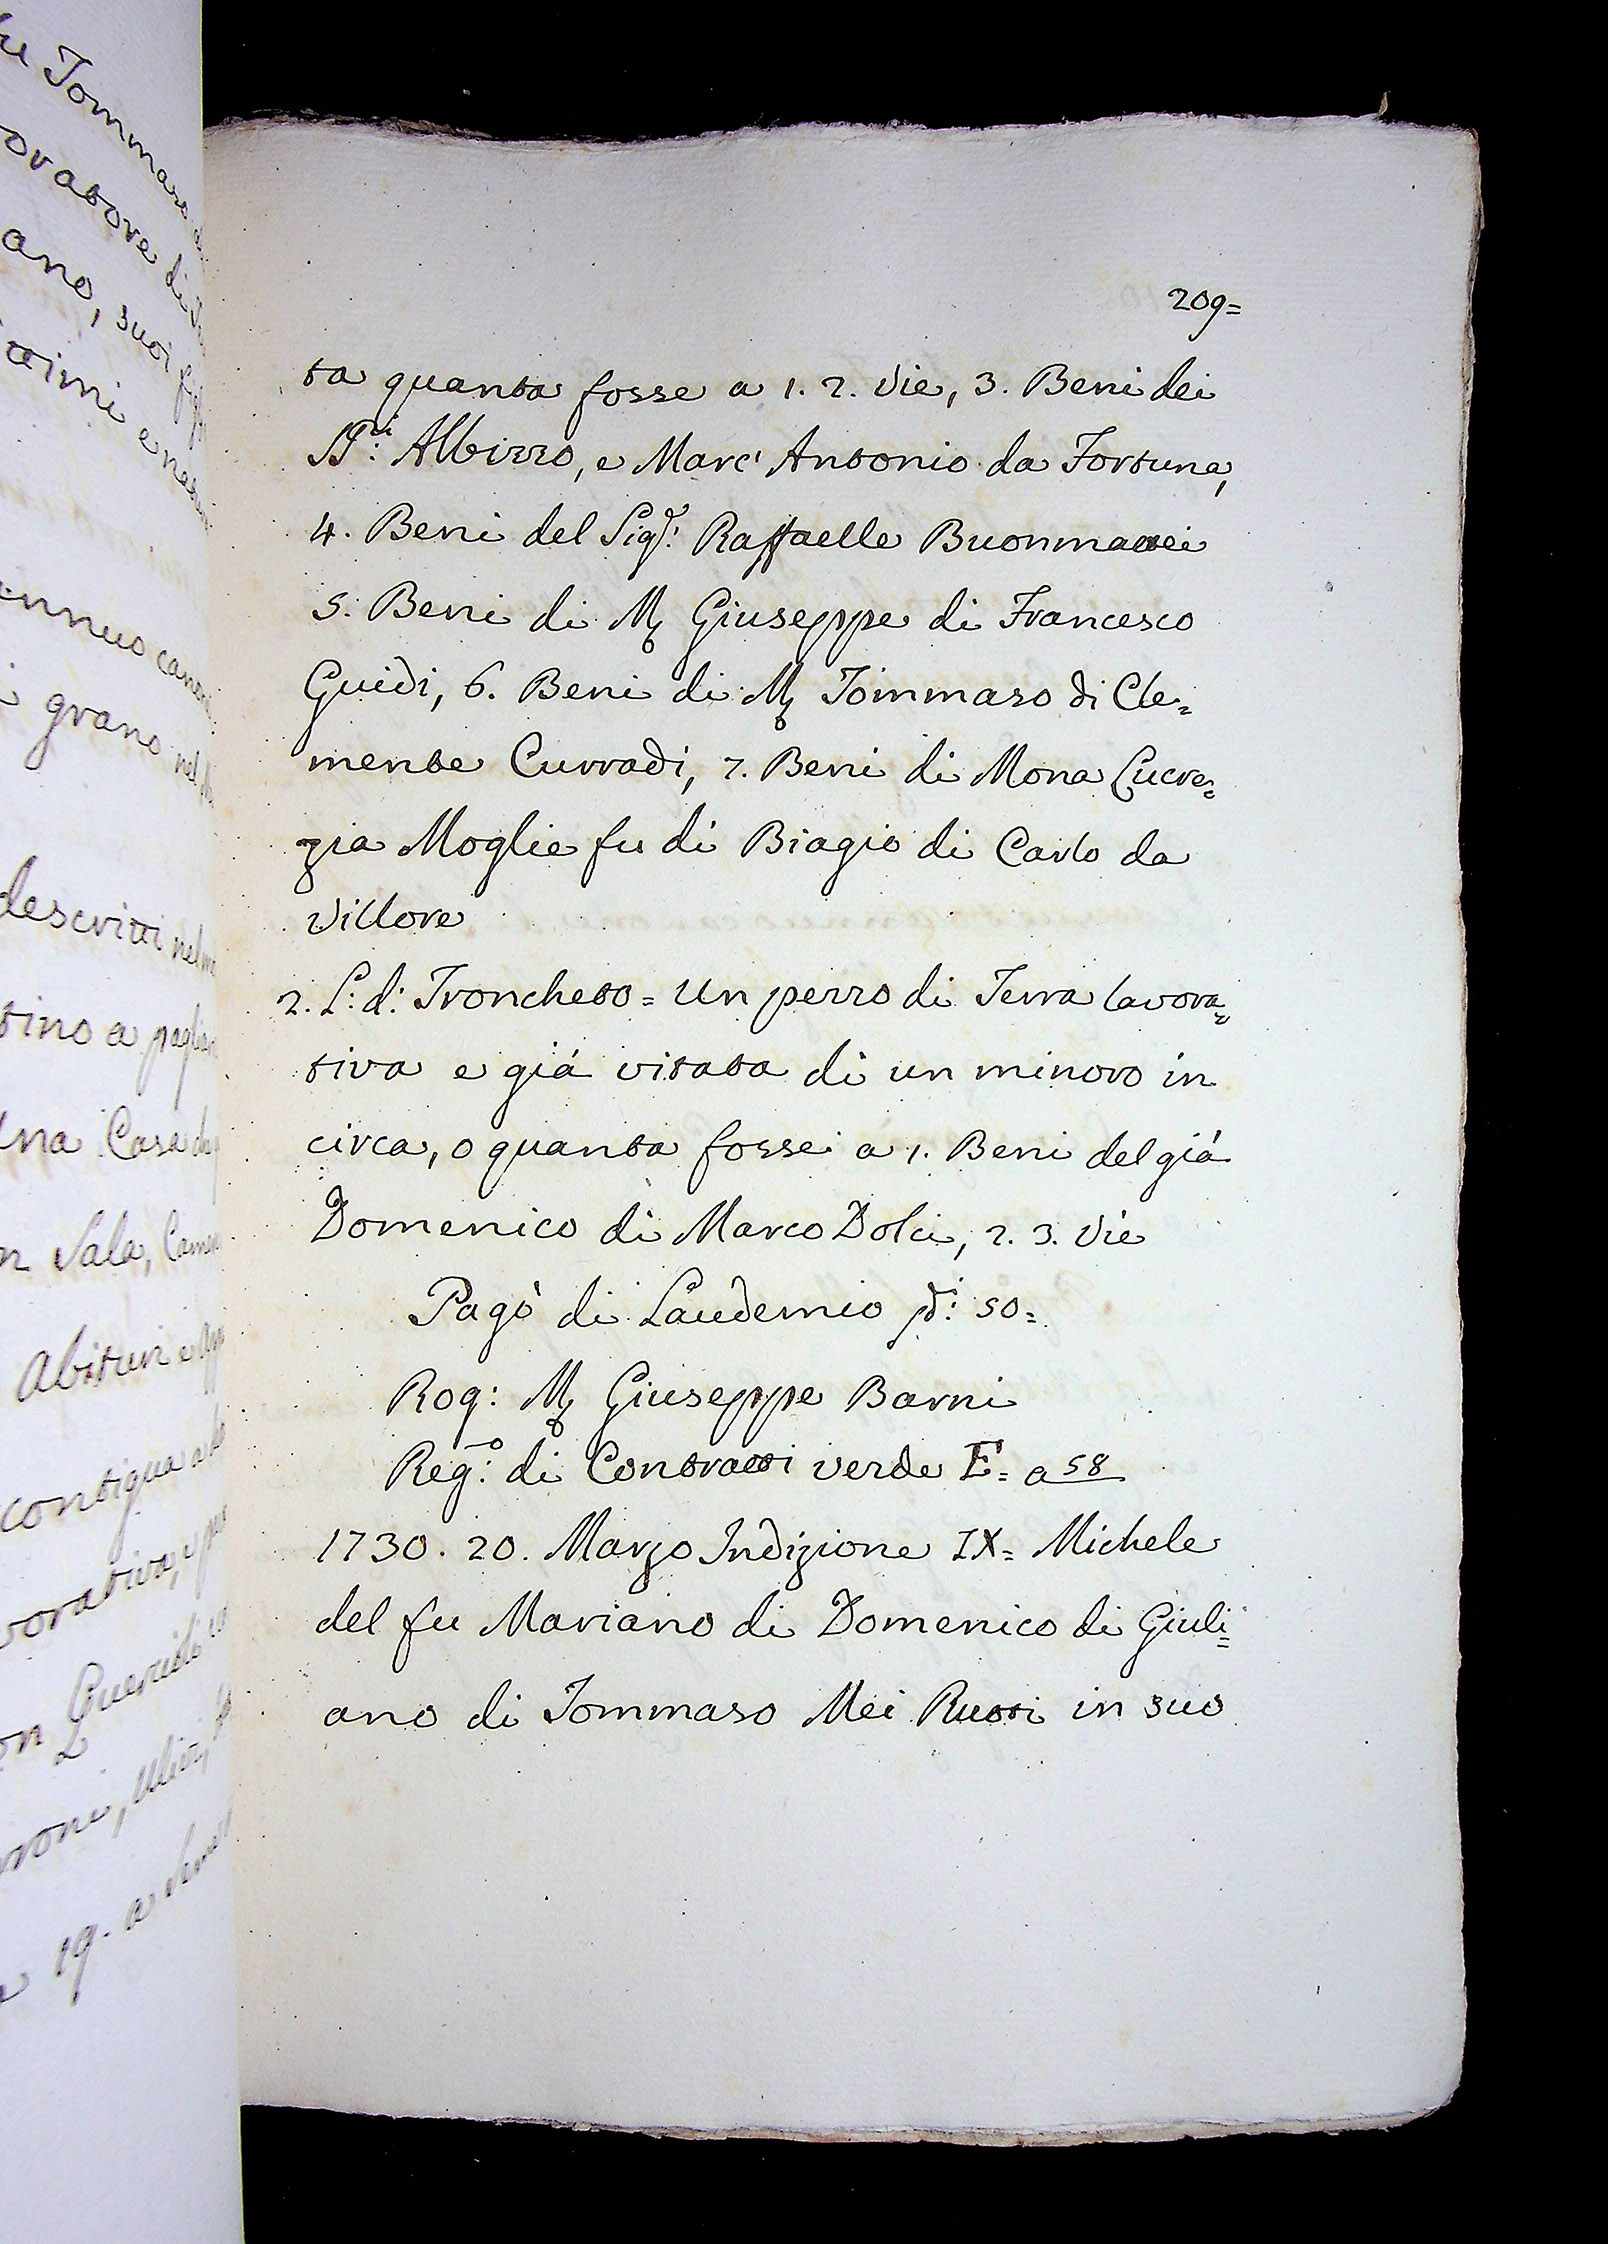 209=
ta quanta fosse a 1. 2. Vie, 3. Beni dei
SS:ri Albizzo, e Marc' Antonio da Fortuna,
4. Beni del Sigr: Raffaelle Buonmattei
5. Beni di M Giuseppe di Francesco
Guidi, 6. Beni di M Tommaso di Cle=
mente Curradi, 7. Beni di Mona Lucre=
zia Moglie fu di Biagio di Carlo da
Villore
2. L: d: Troncheto = Un pezzo di Terra lavora=
tiva e giá vitata di un minoro in
circa, o quanta fosse a 1. Beni del giá
Domenico di Marco Dolci, 2. 3. Vie
Pagò di Laudemio di: 50=
Rog: M Giuseppe Barni
Reg:o di Contratti verde E= a 58
1730. 20. Marzo Indizione IX= Michele
del fu Mariano di Domenico di Giuli=
ano di Tommaso Mei Rutti in suo
Tommaso
ano, suoi
annuo
grano nel
descritti nel
tino a
Una Casa
Sala,
Abituri e
contigua a
19. a